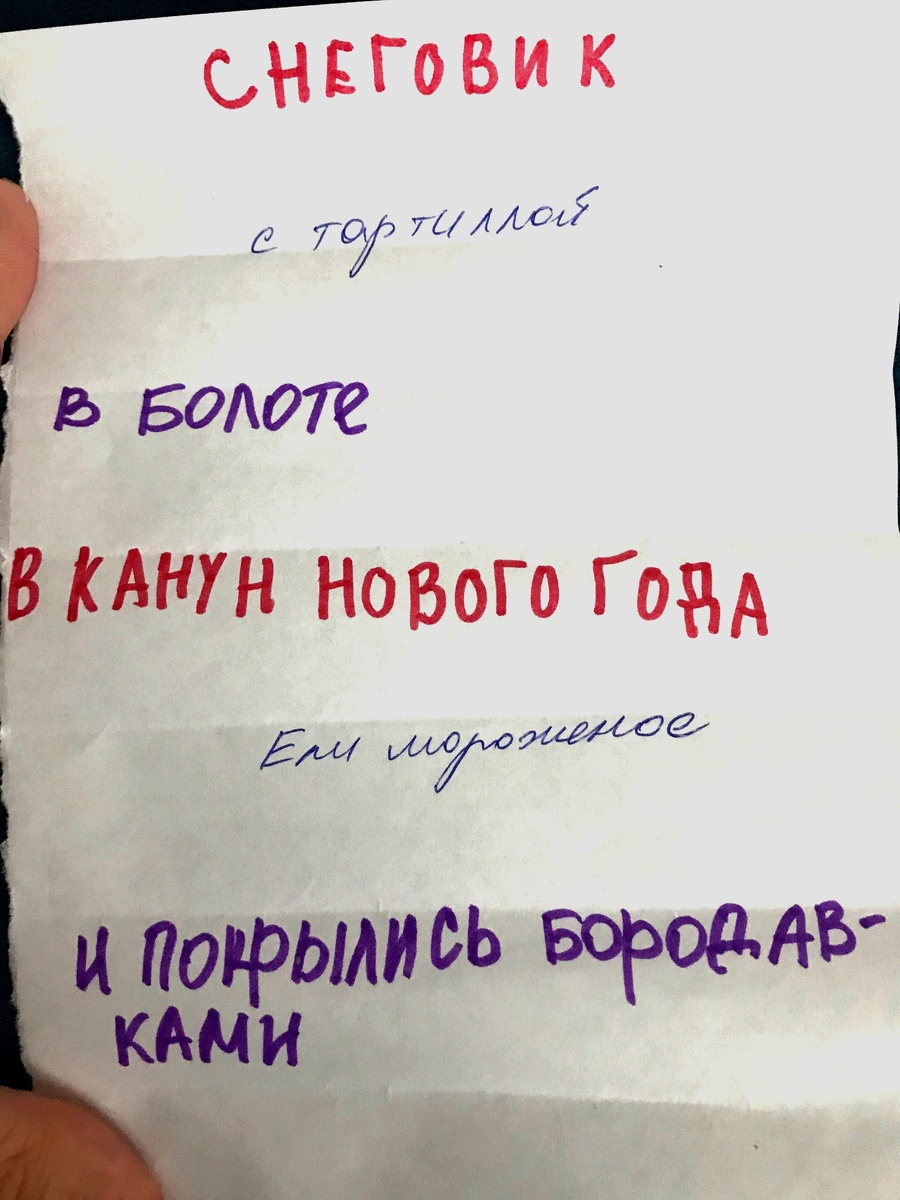 СНЕГОВИК
с тортиллой
В БОЛОТЕ
В КАНУН НОВОГО ГОДА
Ели мороженое
И ПОКРЫЛИСЬ БОРОДАВ-
КАМИ